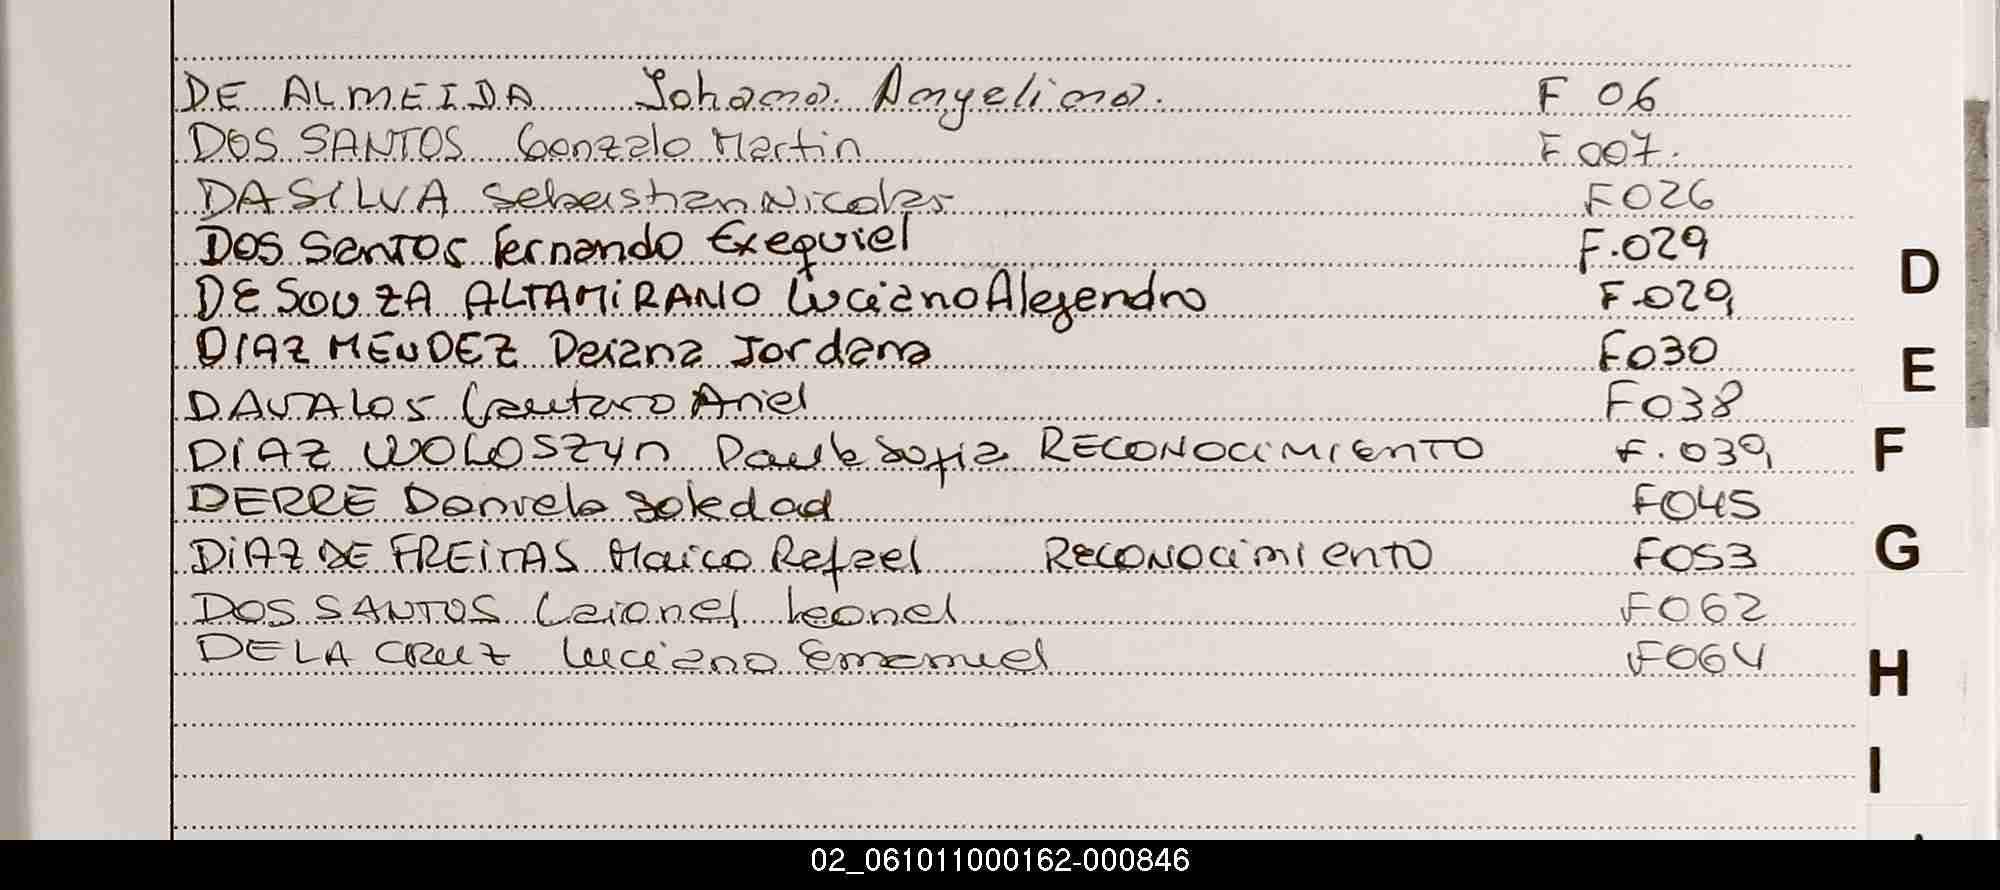 DE ALMEIDA Johana Angelina. F 06
DOS SANTOS Gonzalo Martin F 007.
DA SILVA Sebastian Nicolas F026
DOS SANTOS Fernando Exequiel F.029
DE SOUZA ALTAMIRANO Luciano Alejandro F.029
DIAZ MENDEZ Daiana Jordana F030
DAVALOS Lautaro Ariel F038
DIAZ WOLOSZYN Paula Sofia RECONOCIMIENTO F.039
DERRE Daniela Soledad F045
DIAZ DE FREITAS Maico Rafael RECONOCIMIENTO F053
DOS SANTOS Laionel Leonel F062
DE LA CRUZ Luciano Emanuel F064
D
E
F
G
H
I
02_061011000162-000846